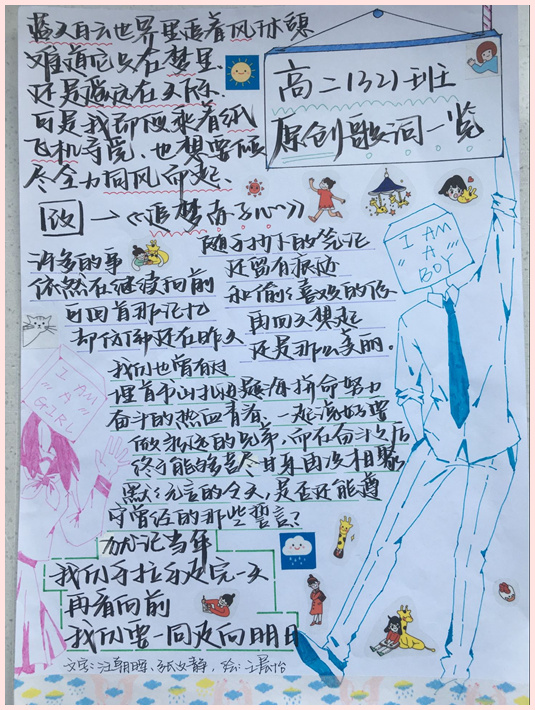 高二(32)班
原创歌词一览
蓝天白云世界里追着风旅
难道它只在梦里
还是飘流在天际
可是我却愿乘着纸
飞机寻觅,也想要倾
尽全力同风而起、
改 → 《追梦赤子心》
许多的事
依然在继续向前
可回首那记忆
却仿佛还在昨天
随手抄下的笔记
还留有痕迹
和偷偷喜欢的你
再回头想起
还是那么美丽。
我们也曾有过
埋首书山扎海题海拼命努力
奋斗的热血青春,一起说好要
做永远的兄弟,而在奋斗之后
终于能够苦尽甘来再次相聚
默默无言的今天,是否还能遵
守曾经的那些誓言?
犹记当年
我们手拉手及完一天
再看向前
我们要一同走向明日
I AM
A
BOY
I AM
A
GIRL